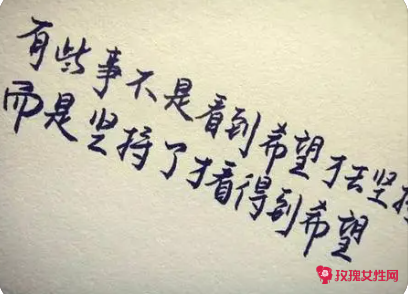 有些事不是看到希望才去坚持
而是坚持了才看得到希望
玫瑰女性网